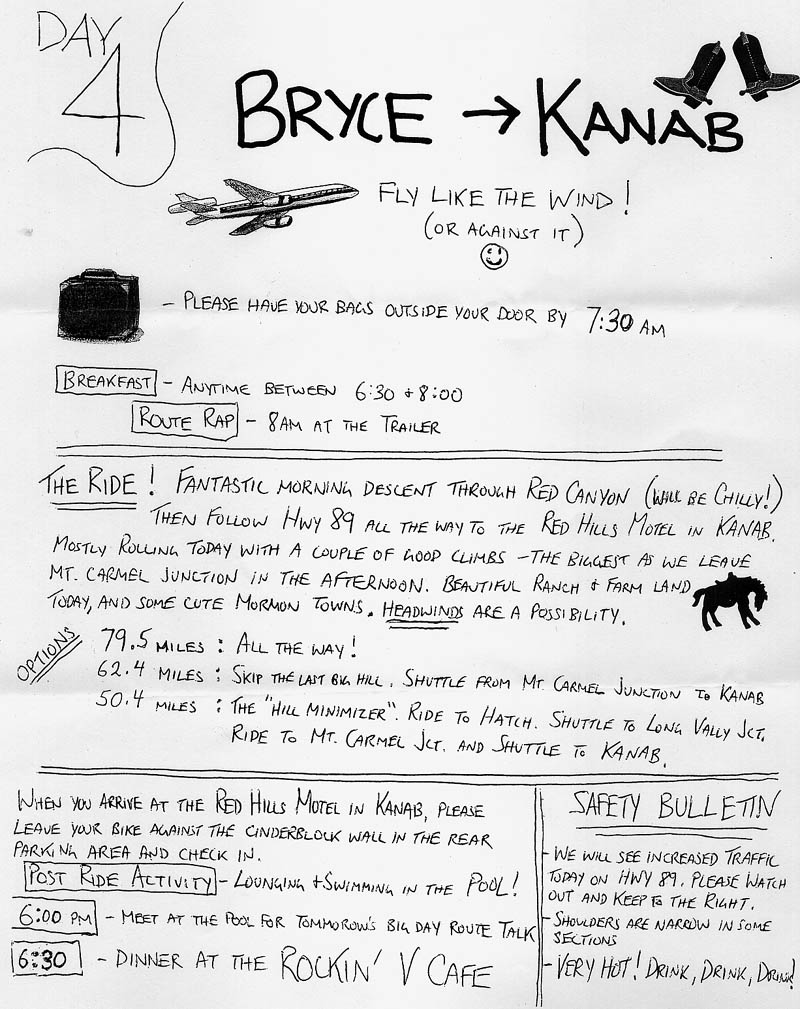 DAY
4
BRYCE → KANAB
FLY LIKE THE WIND!
(OR AGAINST IT)
- PLEASE HAVE YOUR BAGS OUTSIDE YOUR DOOR BY 7:30 AM
BREAKFAST - ANYTIME BETWEEN 6:30 & 8:00
ROUTE RAP - 8AM AT THE TRAILER
THE RIDE! FANTASTIC MORNING DESCENT THROUGH RED CANYON (WILL BE CHILLY!)
THEN FOLLOW HWY 89 ALL THE WAY TO THE RED HILLS MOTEL IN KANAB.
MOSTLY ROLLING TODAY WITH A COUPLE OF GOOD CLIMBS - THE BIGGEST AS WE LEAVE
MT. CARMEL JUNCTION IN THE AFTERNOON. BEAUTIFUL RANCH & FARM LAND
TODAY, AND SOME CUTE MORMON TOWNS. HEADWINDS ARE A POSSIBILITY.
OPTIONS
79.5 MILES : ALL THE WAY!
62.4 MILES : SKIP THE LAST BIG HILL. SHUTTLE FROM MT. CARMEL JUNCTION TO KANAB
50.4 MILES : THE "HILL MINIMIZER". RIDE TO HATCH. SHUTTLE TO LONG VALLY JCT.
RIDE TO MT. CARMEL JCT. AND SHUTTLE TO KANAB.
WHEN YOU ARRIVE AT THE RED HILLS MOTEL IN KANAB, PLEASE
LEAVE YOUR BIKE AGAINST THE CINDERBLOCK WALL IN THE REAR
PARKING AREA AND CHECK IN.
POST RIDE ACTIVITY - LOUNGING & SWIMMING IN THE POOL!
6:00 PM - MEET AT THE POOL FOR TOMMOROW'S BIG DAY ROUTE TALK
6:30 - DINNER AT THE ROCKIN' V CAFE
SAFETY BULLETIN
- WE WILL SEE INCREASED TRAFFIC
TODAY ON HWY 89. PLEASE WATCH
OUT AND KEEP TO THE RIGHT.
- SHOULDERS ARE NARROW IN SOME
SECTIONS
- VERY HOT! DRINK, DRINK, DRINK!